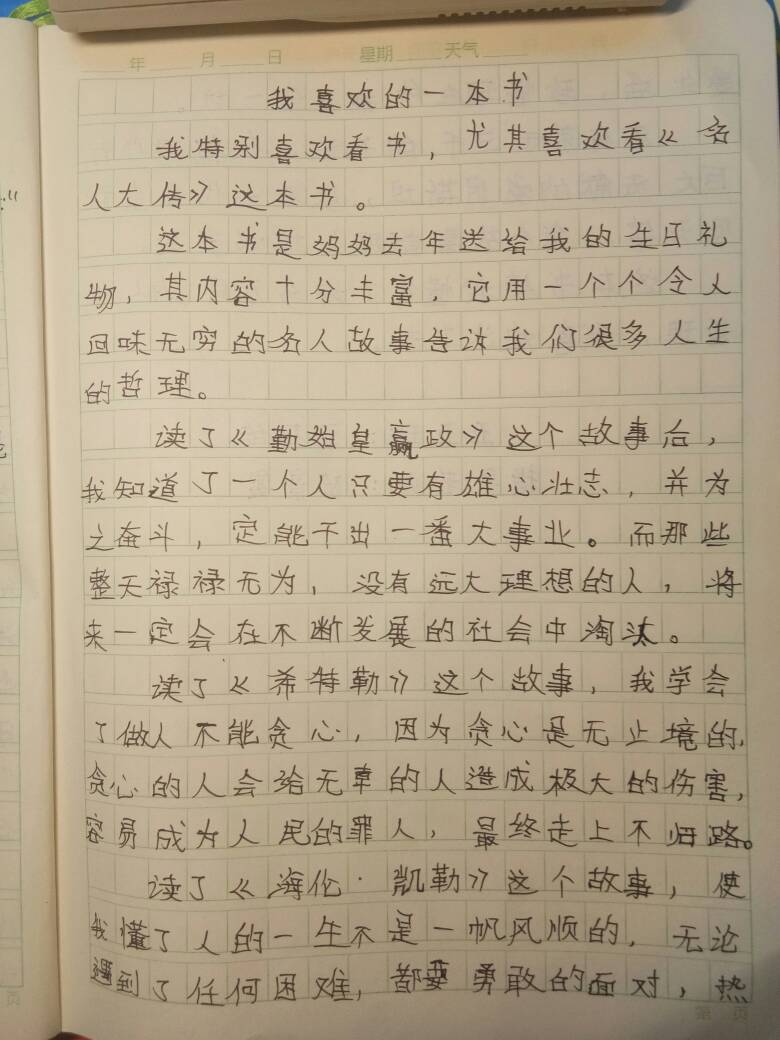 年 月 日 星期 天气
我喜欢的一本书
我特别喜欢看书，尤其喜欢看《名
人大传》这本书。
这本书是妈妈去年送给我的生日礼
物，其内容十分丰富，它用一个个令人
回味无穷的名人故事告诉我们很多人生
的哲理。
读了《勤始皇嬴政》这个故事后，
我知道了一个人只要有雄心壮志，并为
之奋斗，定能干出一番大事业。而那些
整天禄禄无为，没有远大理想的人，将
来一定会在不断发展的社会中淘汰。
读了《希特勒》这个故事，我学会
了做人不能贪心，因为贪心是无止境的，
贪心的人会给无辜的人造成极大的伤害，
容易成为人民的罪人，最终走上不归路。
读了《海伦·凯勒》这个故事，使
我懂了人的一生不是一帆风顺的，无论
遇到了任何困难，都要勇敢的面对，热
第 页